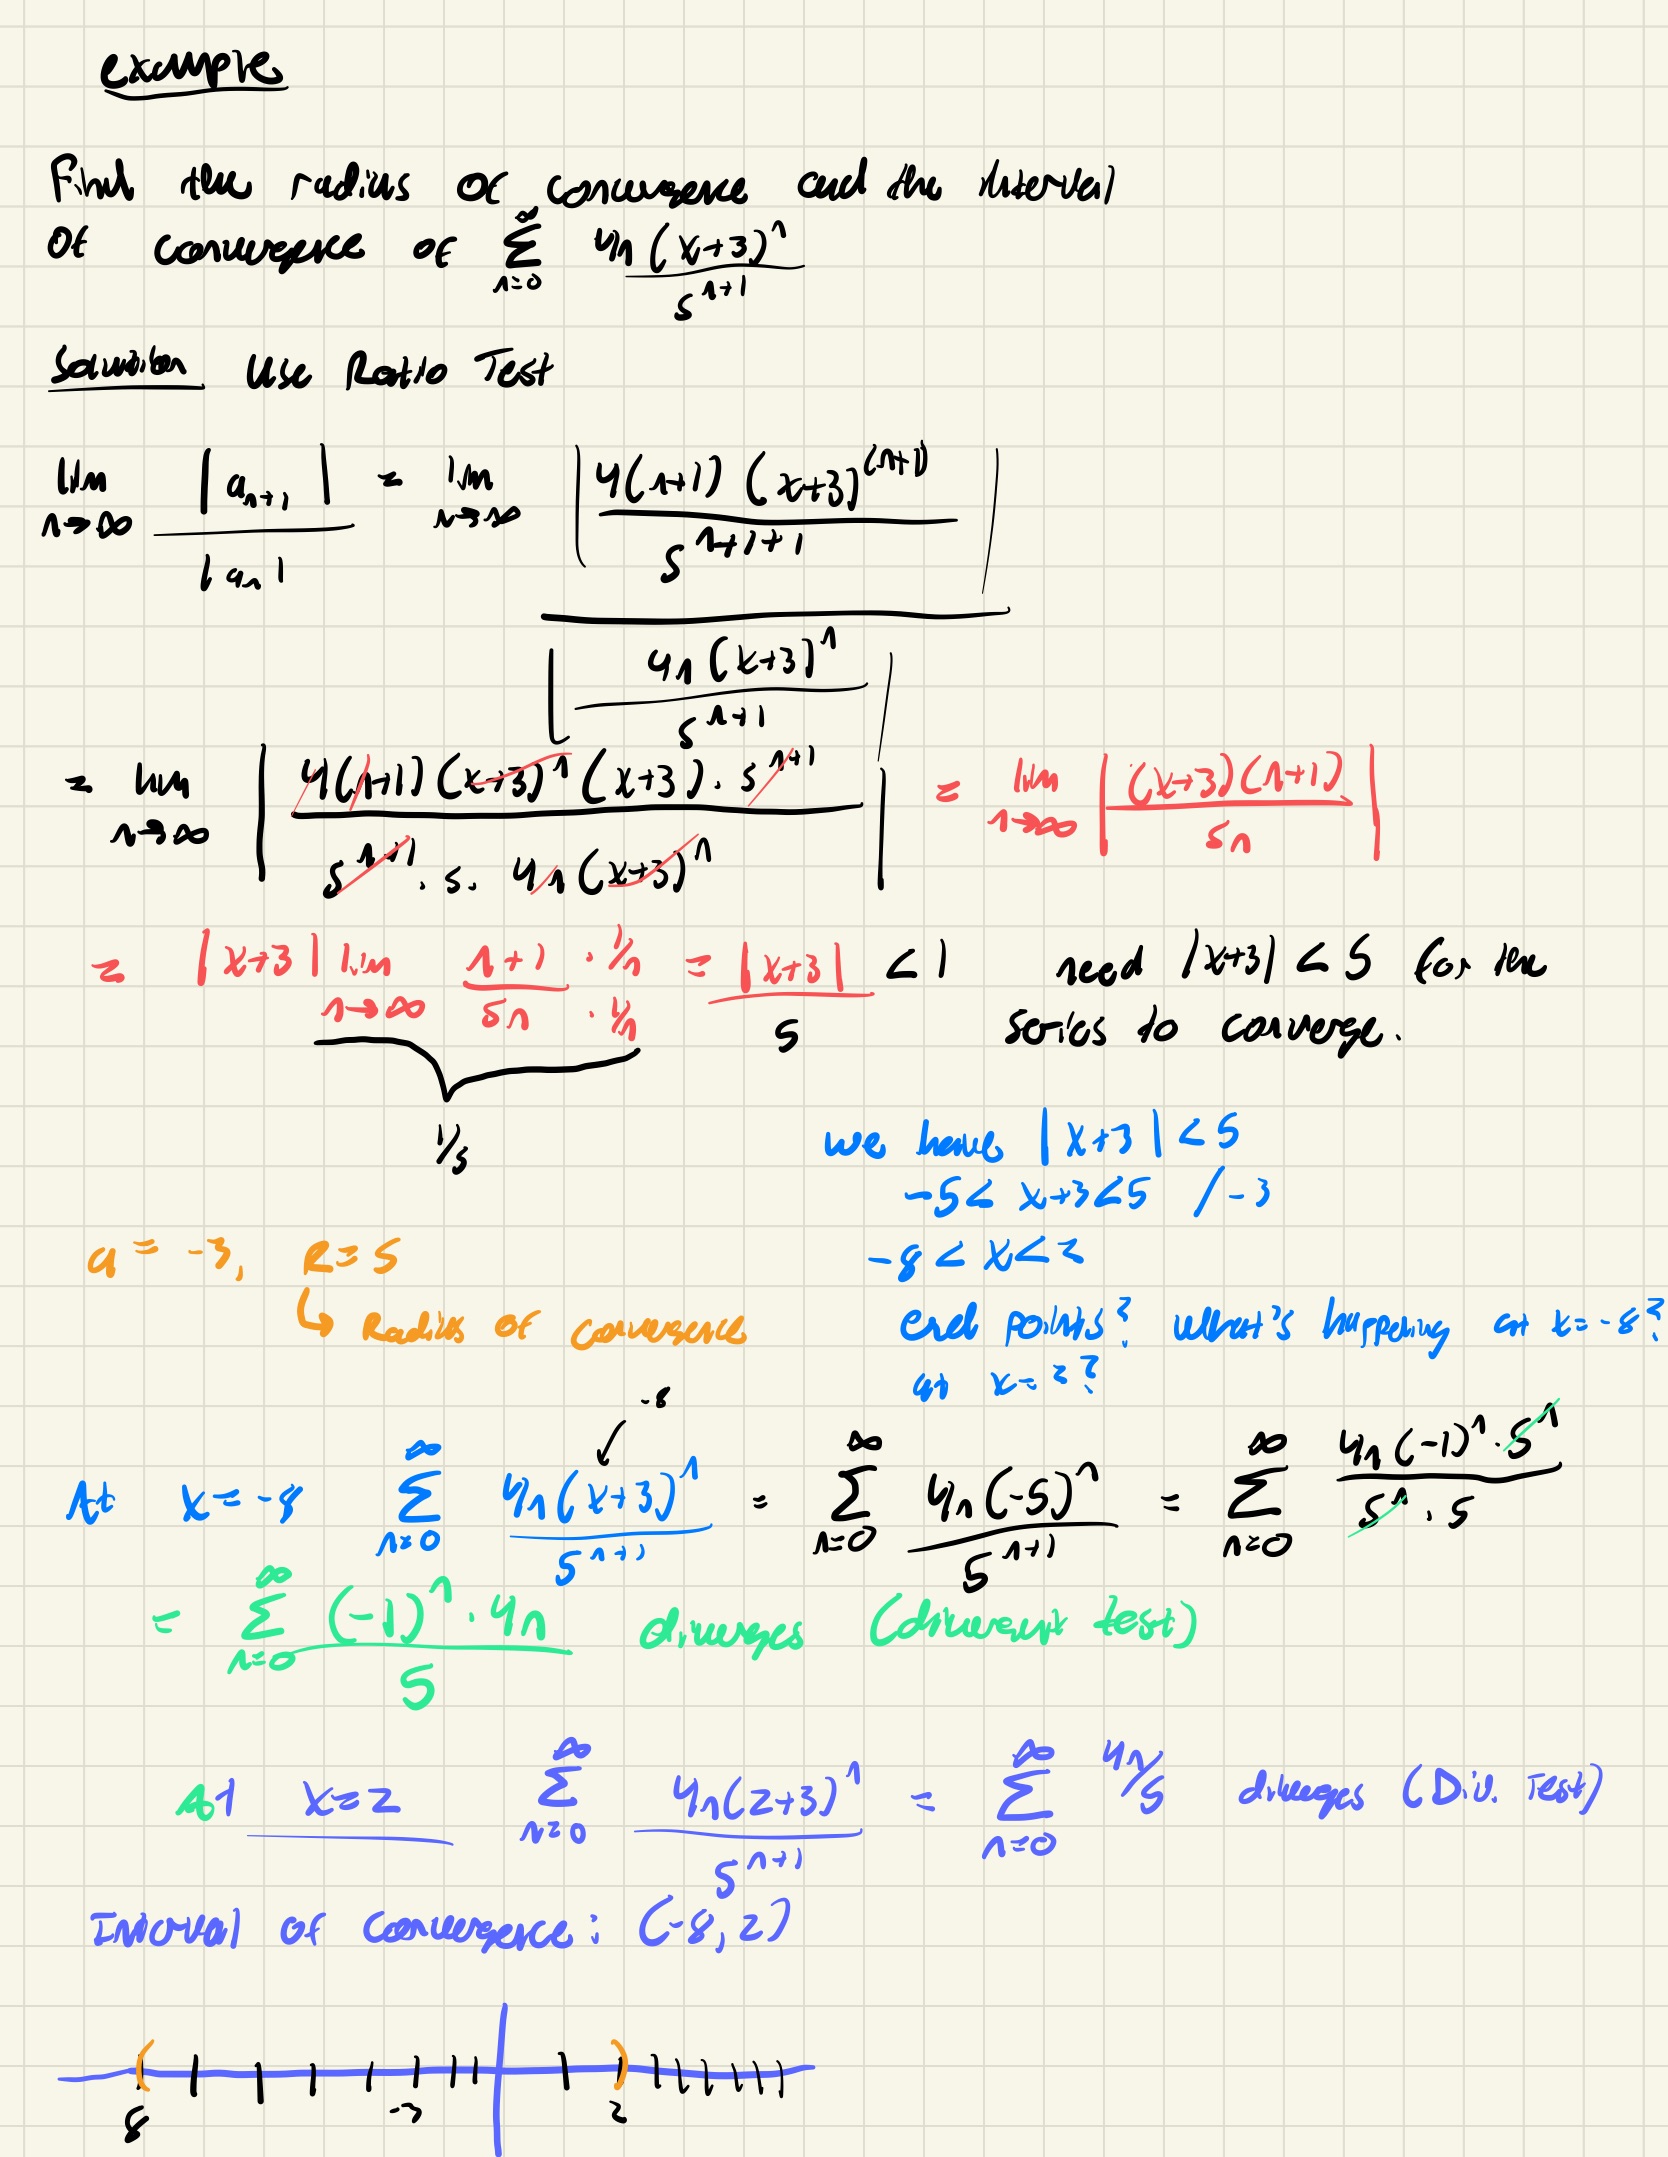 example
Find the radius of convergence and the interval
of convergence of ∑_{n=0}^{∞} 4n(x+3)^n / 5^{n+1}
Solution Use Ratio Test
lim_{n→∞} |a_{n+1}| / |a_n| = lim_{n→∞} |4(n+1)(x+3)^{(n+1)} / 5^{n+1+1}| / |4n(x+3)^n / 5^{n+1}|
= lim_{n→∞} |4(n+1)(x+3)^n (x+3) · 5^{n+1} / 5^{n+1} · 5 · 4n(x+3)^n| = lim_{n→∞} |(x+3)(n+1) / 5n|
= |x+3| lim_{n→∞} n+1 / 5n · 1/n / · 1/n = |x+3| / 5 < 1 need |x+3| < 5 for the
series to converge.
1/5
we have |x+3| < 5
-5 < x+3 < 5 / -3
-8 < x < 2
a = -3, R = 5
↳ Radius of convergence
end points? What's happening at x = -8?
at x = 2?
-8
At x = -8 ∑_{n=0}^{∞} 4n(x+3)^n / 5^{n+1} = ∑_{n=0}^{∞} 4n(-5)^n / 5^{n+1} = ∑_{n=0}^{∞} 4n(-1)^n · 5^n / 5^n · 5
= ∑_{n=0}^{∞} (-1)^n · 4n / 5 diverges (divergent test)
At x = 2 ∑_{n=0}^{∞} 4n(2+3)^n / 5^{n+1} = ∑_{n=0}^{∞} 4n/5 diverges (Div. Test)
Interval of convergence: (-8, 2)
( )
8 -3 2